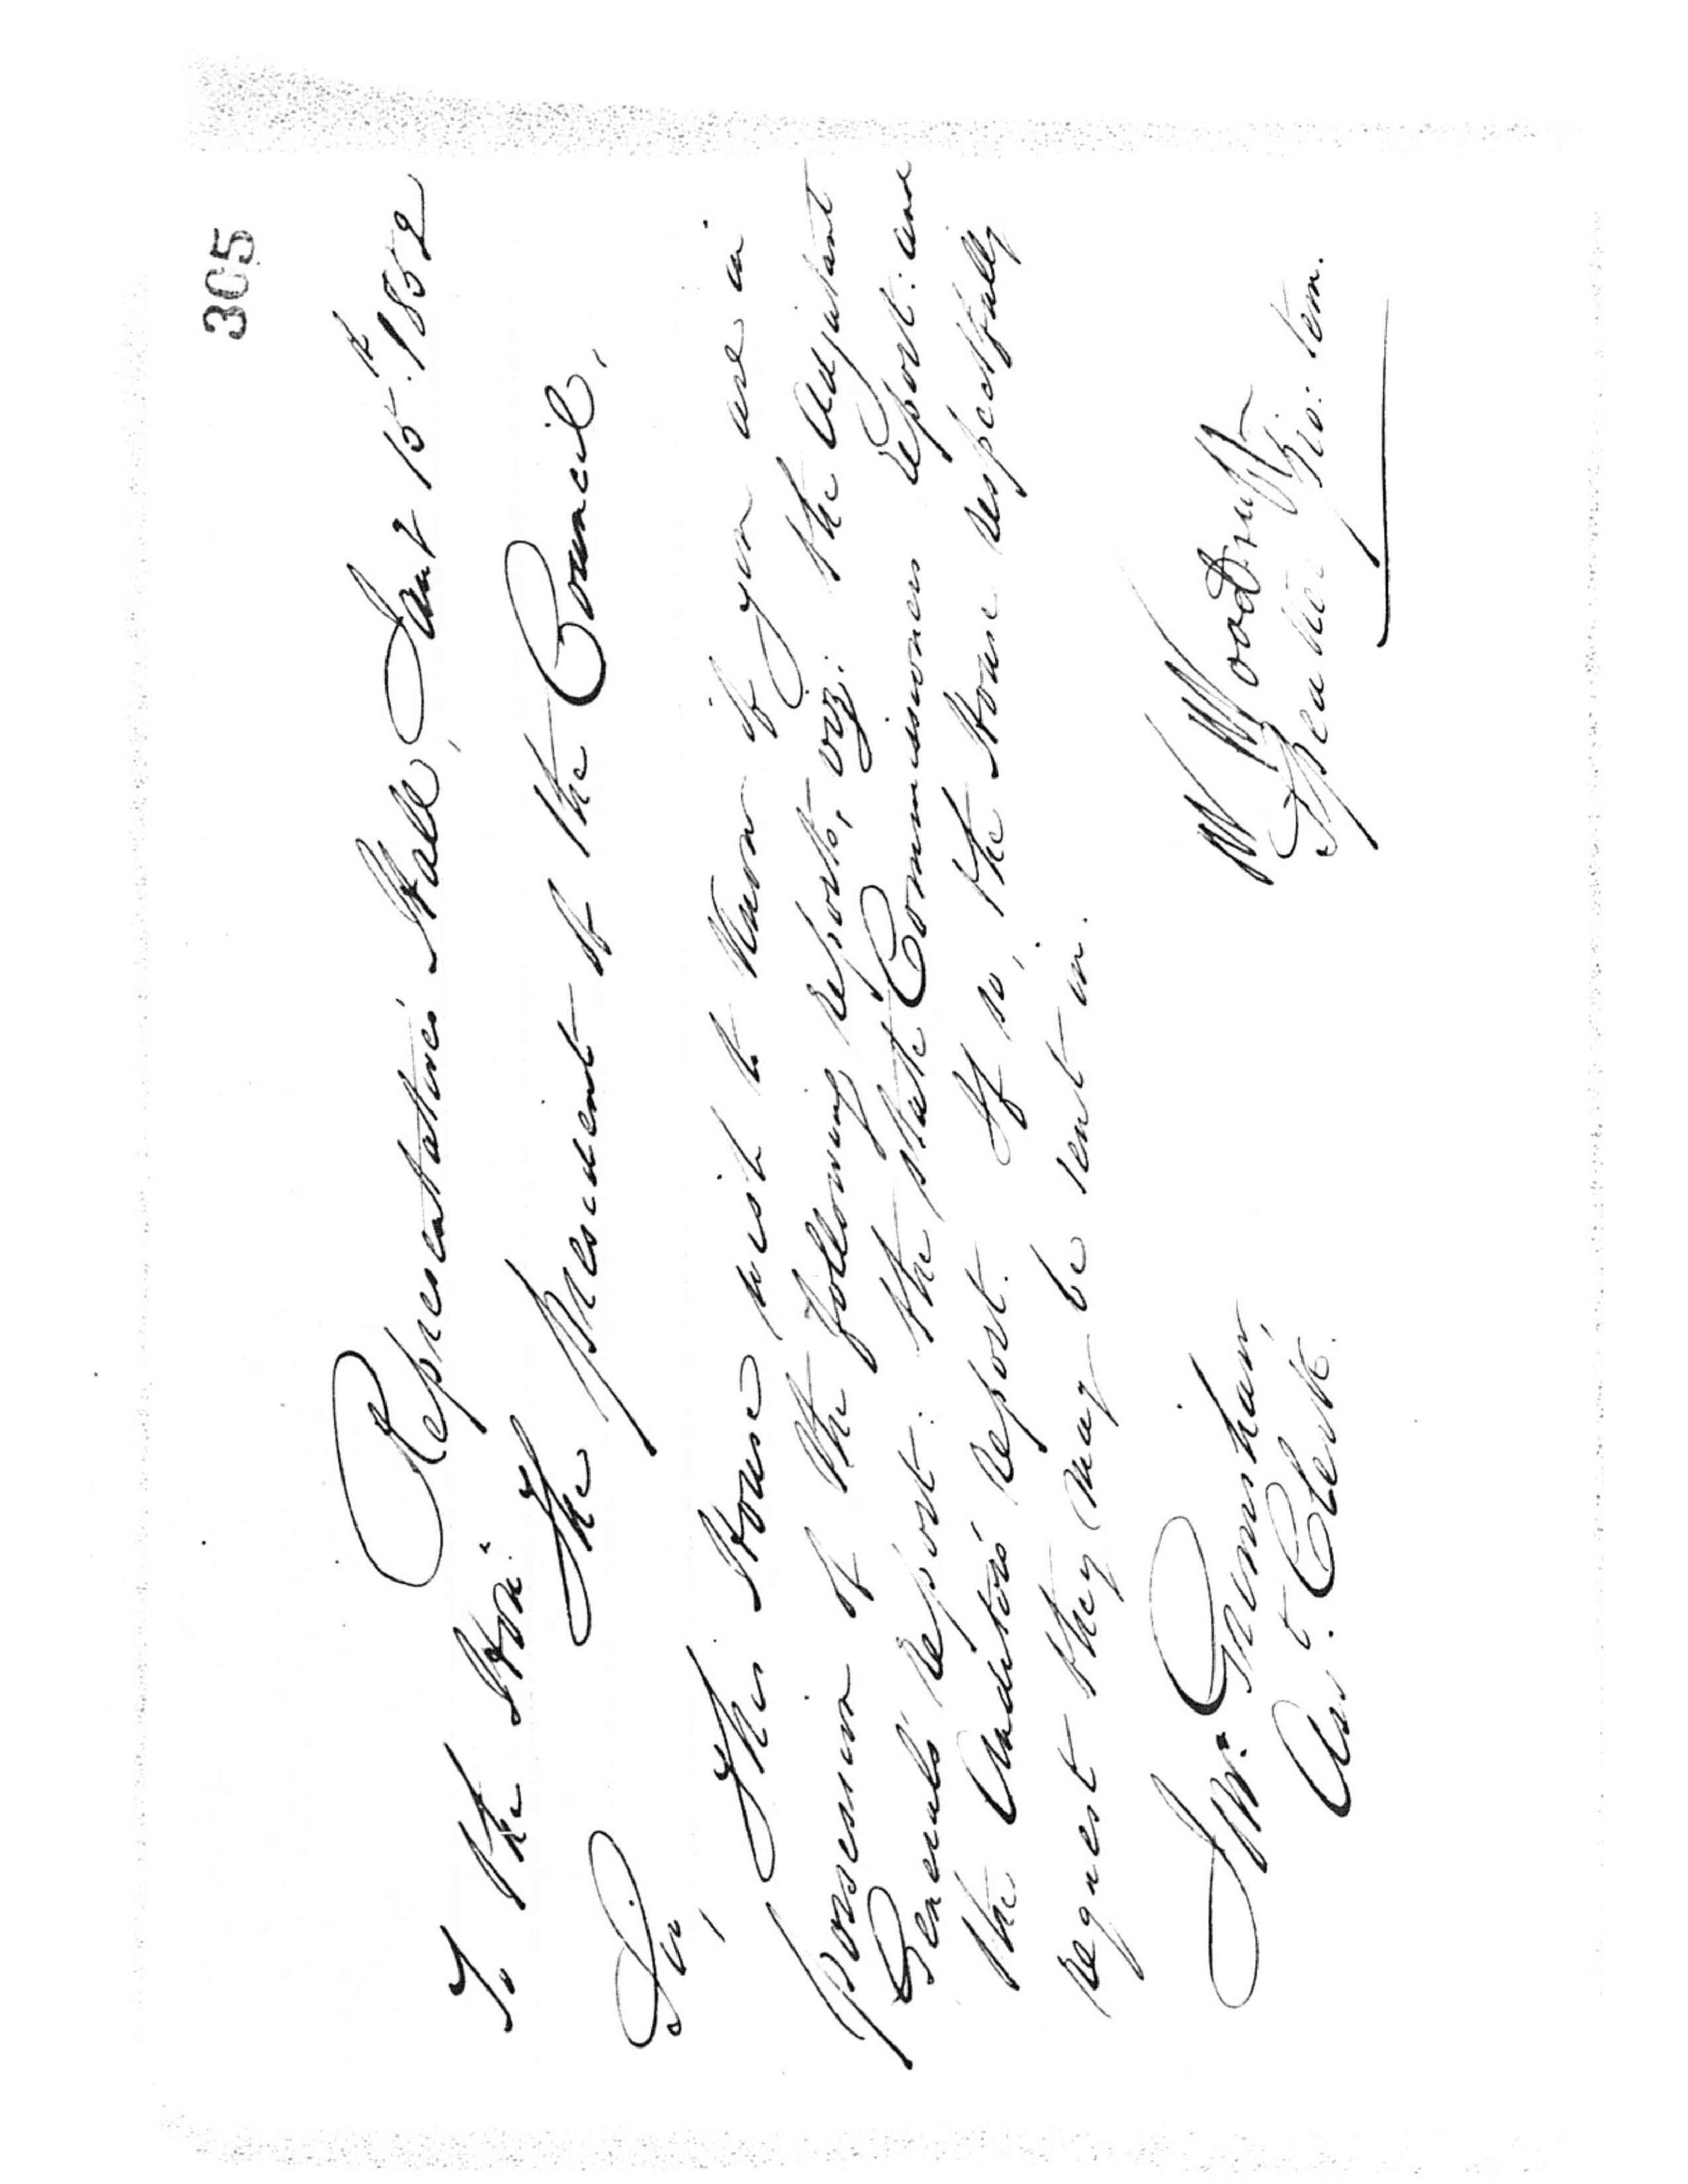 305
Representatives' Hall, Jany 15th. 1852
To the Hon:
The President of the Council,
Sir,
The House wish to know if you are in
possession of the following reports, viz: the Adjutant
Generals' Report: the State Commissioners report: and
the Auditors' report. If so, the House respectfully
request they may be sent in.
W Woodruff
Speaker Pro: tem.
J W. Grimshaw,
Ass.t Clerk.